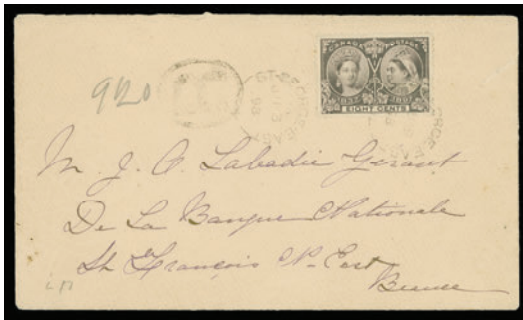 CANADA POSTAGE
1837 1897
EIGHT CENTS
ST-GEORGE-EAST
920
M. J. O. Labadie Gerant
De La Banque Nationale
St François N-Est
Beauce